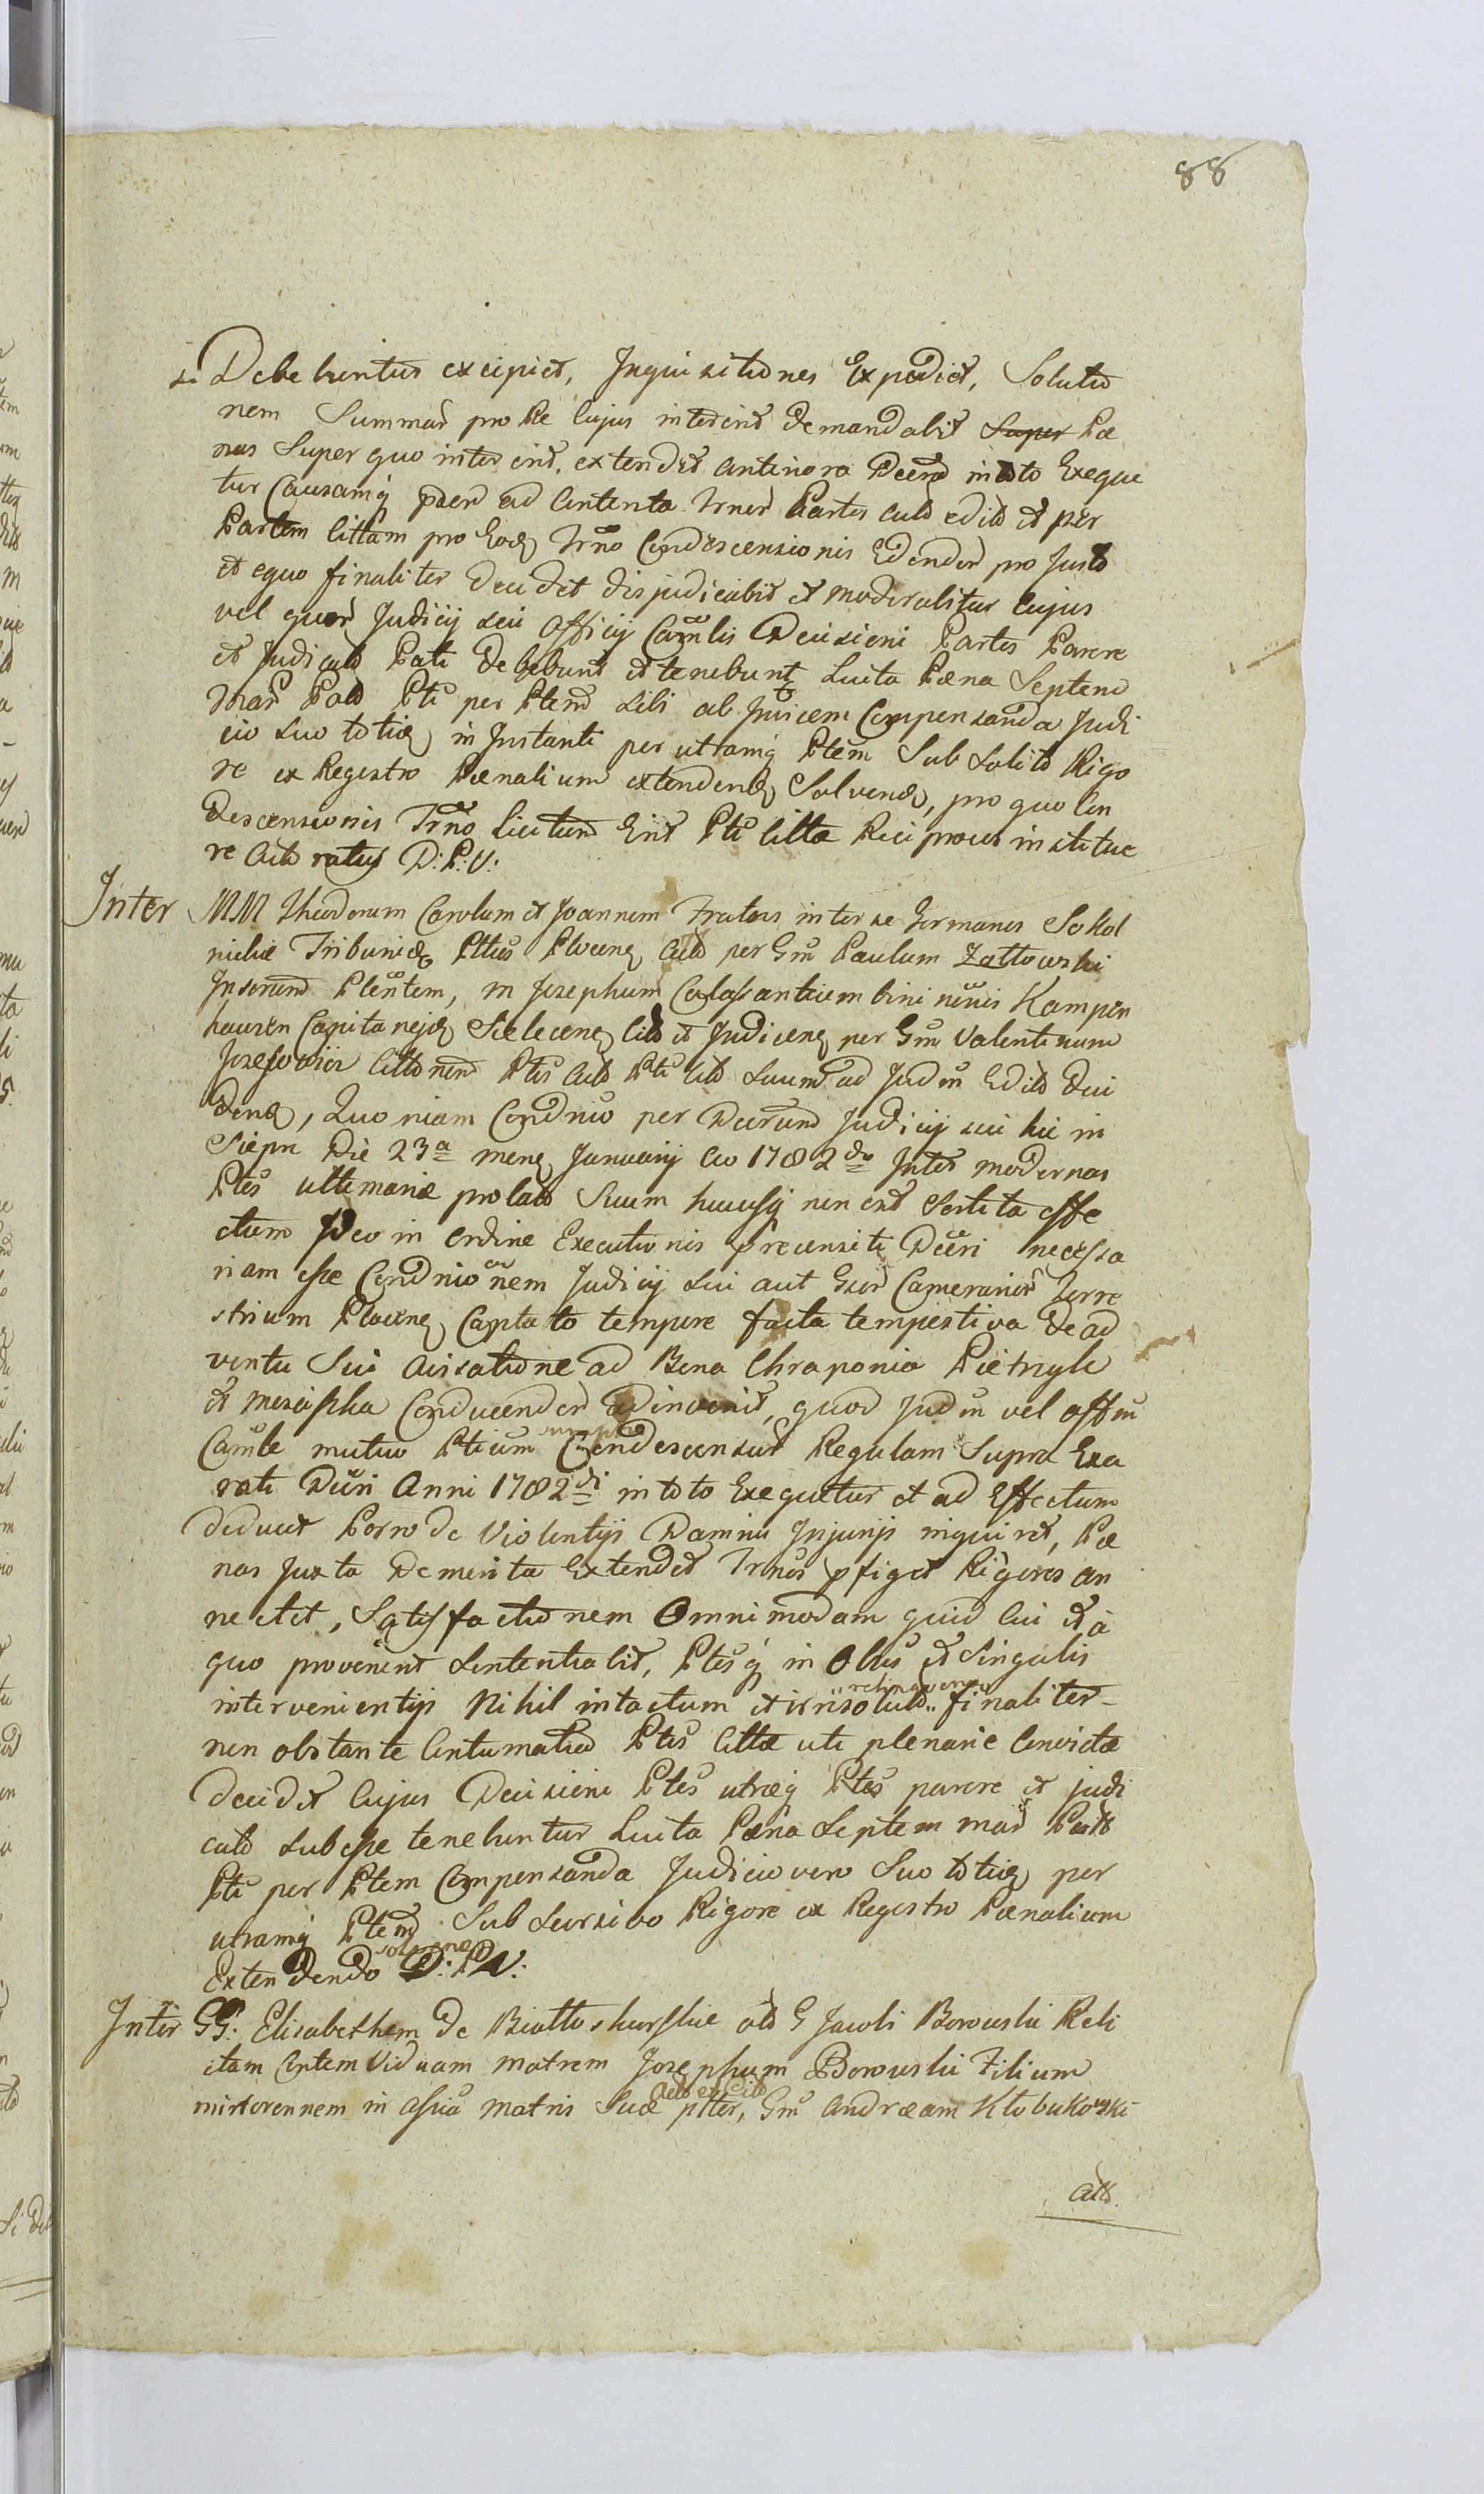 88
si Debebuntur excipiet, Inquisitiones Expediet, Solutio
nem Summar pro Re cujus intererit demandabit Super Pæ
nas Super quo intererit, extendet anteriora Decra in toto Exeque
tur Causamq pntem ad Contenta Trnor Partis Actoreæ edit et per
Partem Cittam pro Eodq Trno Condescensionis Edendor pro Justo
et equo finaliter decidet disjudicabit et moderabitur Cujus
vel quor Judicij seu Officij Camrlis Decisioni Partes Parere
et Judicato Pati debebunt et tenebuntur Luita Pæna Septem
Mar Pol Pti per Ptem sibi ab Invicem Compensanda Judi
cio suo totidq in Instanti per utramq Ptem Sub Solito Rigo
re ex Registro Pænalium extendendq Solvendq, pro quo Con
descensionis Trno Licitum Erit Pti Cittæ Reciprocus institue
re Actoratus D: P: V:
Inter MM Theodorum Carolum et Joannem Fratres inter se Germanos Sokol
nickie Tribunidq Pttus Plocenq Act per Gm Paulum Zattowski
Inserum Plentem, M Josephum Calasantium bini nönis Kampen
hausen Capitanejdq Sielecenq Cit et Judicenq per Gm Valentinum
Josefowicz Cittonem Ptis Act Pti Cit suum ad Judm Edito Evi
denq, Quoniam Condnio per Decrum Judicij sui hic in
Sieprc Die 23a mensq January Ao 1782do Inter modernas
Ptes ultimarie prolato Suum hucusq non est Sortita effe
ctum Ideo in ordine Executionis precensiti Decri necessa
riam esse Condnionem Judicij sui aut Gror Camerarior Terre
strium Plocenq Captato tempore facta tempestiva de ad
ventu Sui Avisatione ad Bona Chraponia Pietrzyk
et Meszczka Conducendor adinvenit, quod Judm vel Offm
Camrle mutuo Ptium sumptu Condescensur Regulam Supra Exa
rati Decri Anni 1782di in toto Exequetur et ad Effectum
deducet Porro de Violentijs Damnis Injurijs inquiret, Pæ
nas Juxta Demerita Extendet Trnos pfiget Rigores an
nectet, Satisfactionem Omnimodam quid cui et a
quo provenerit sententiabit, Ptesq in Obus et Singulis
intervenientijs Nihil intactum et irrisolut relinquendo finaliter
non obstante Contumatia Ptis Cittæ uti plenarie Convictæ
decidet Cujus Decisioni Ptes utræq Ptes parere et judi
cato subesse tenebuntur Luita Pæna Septem mar Pol
Pti per Ptem Compensanda Judicio vero Suo totidq per
utramq Ptem Sub Seorsivo Rigore ex Registro Pænalium
Extendendo solvend D: P: V:
Inter GG: Elisabethem De Biattoskurskie olo G Jacobi Borowski Reli
ctam Contem Viduam matrem Josephum Borowski Filium
minorennem in assia matris Suæ ptter, Act et Cit Gm Andræam Kłobukowski
Act